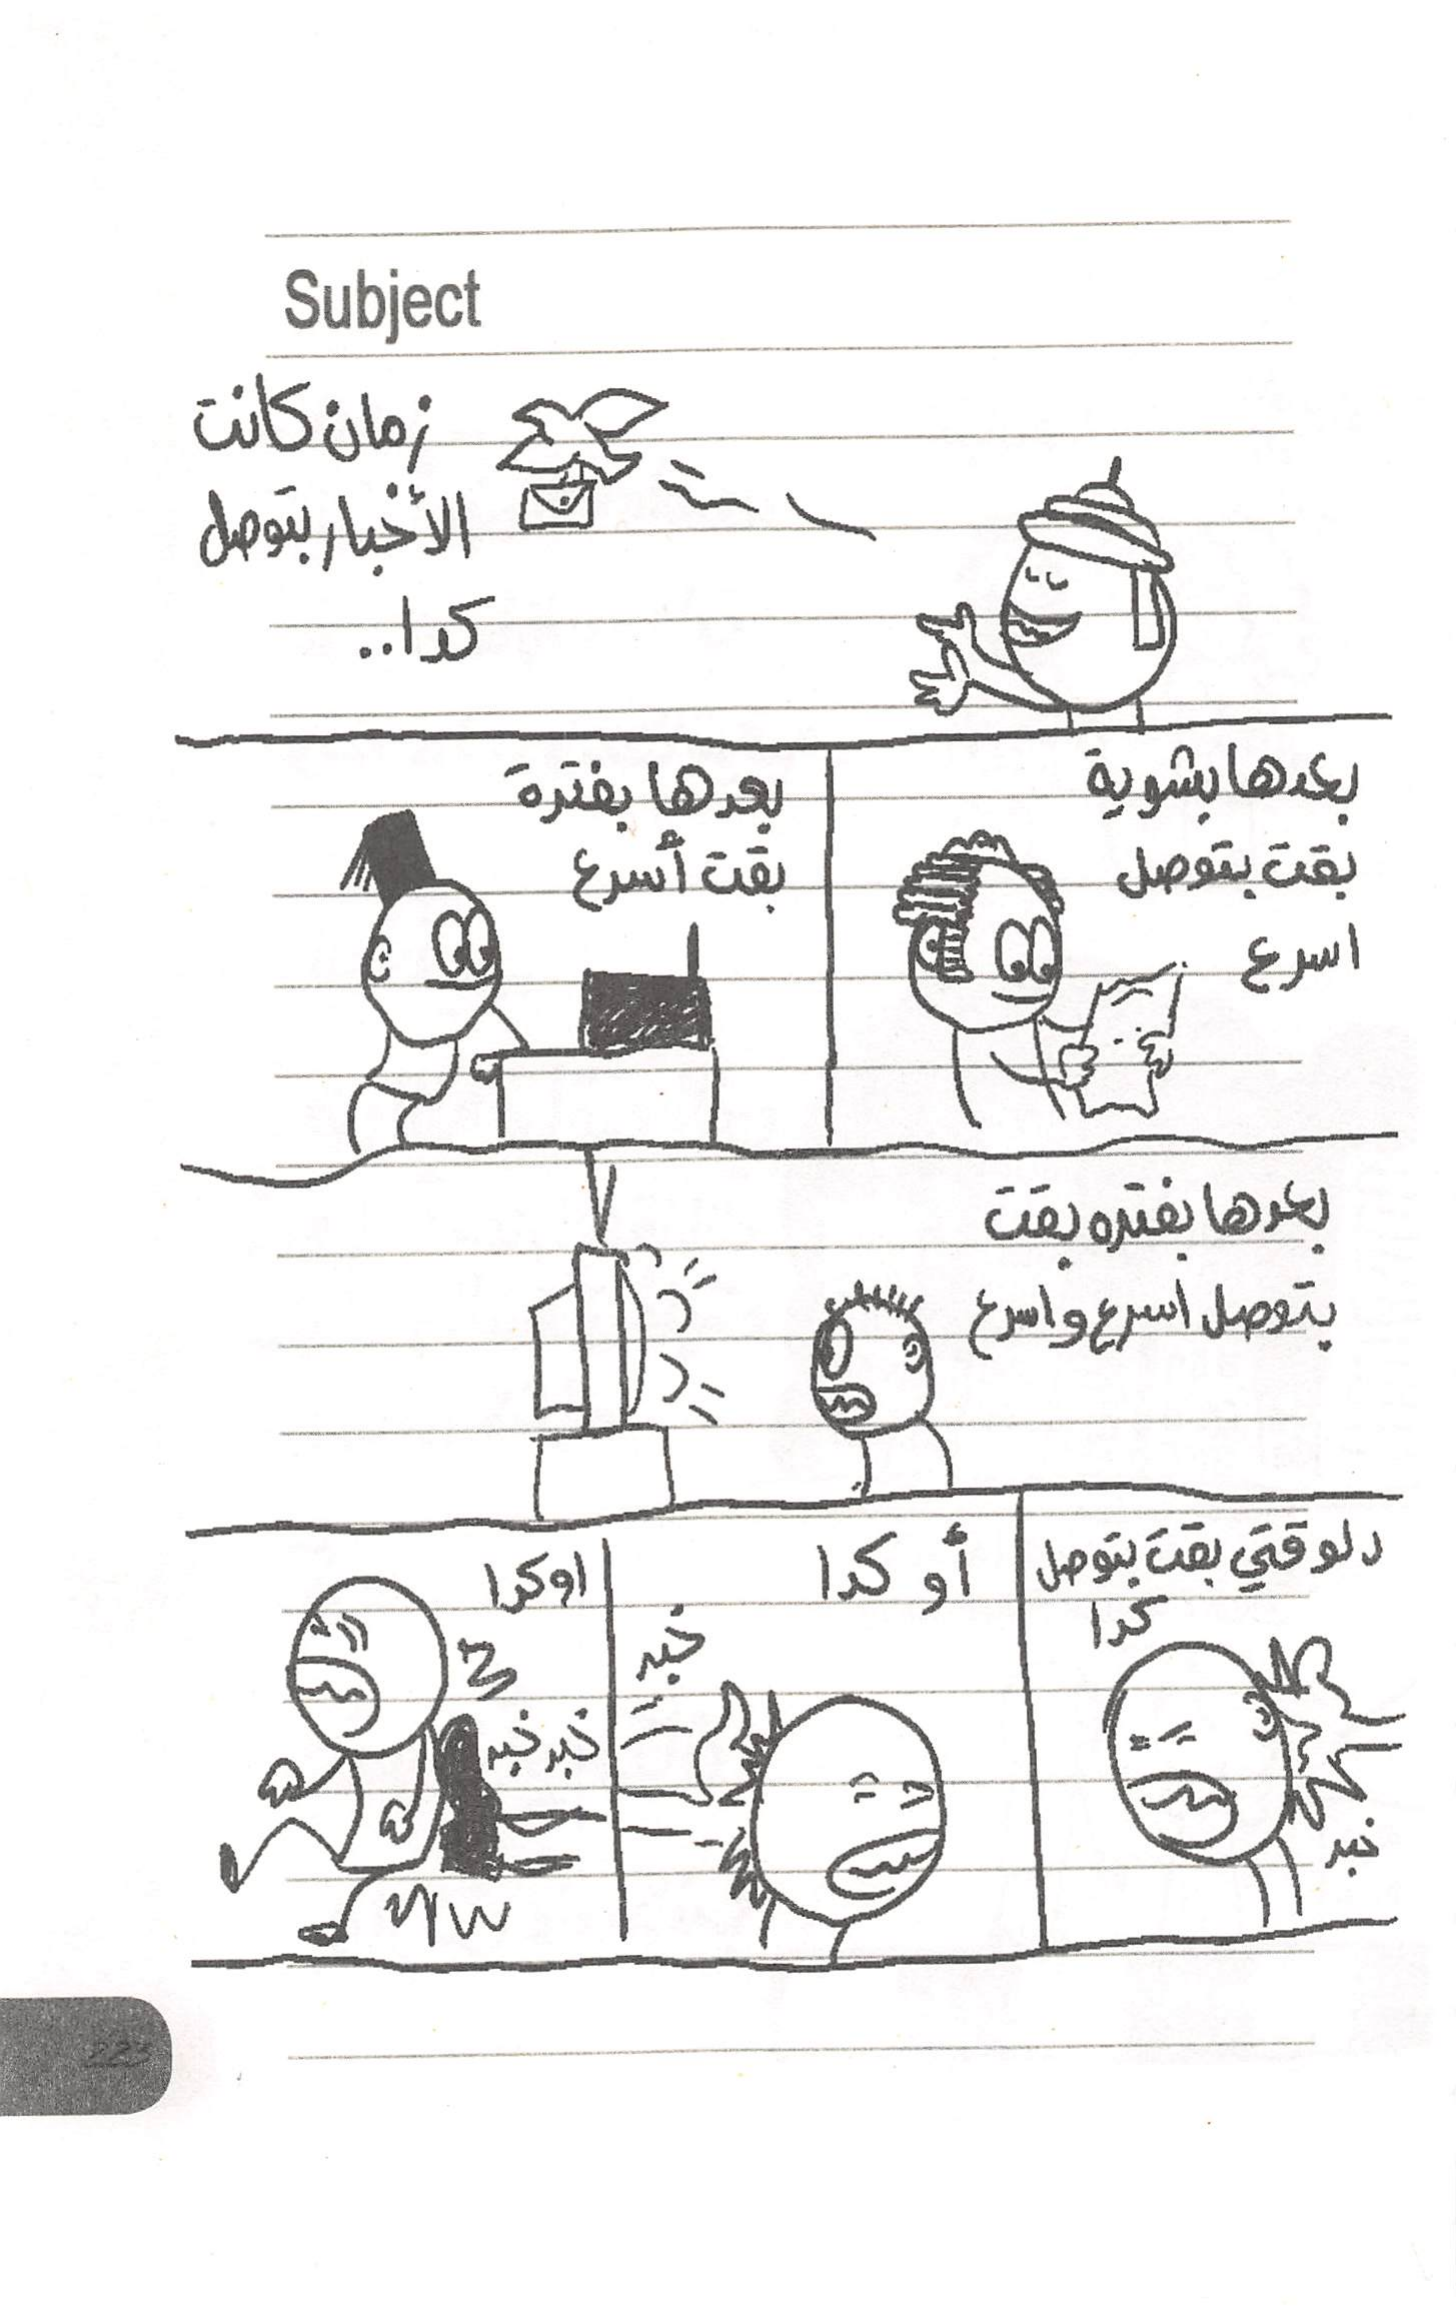 Subject
زمان كانت
الأخبار بتوصل
كدا..
بعدها بشوية
بقت بتوصل
اسرع
بعدها بفترة
بقت أسرع
بعدها بفتره بقت
بتوصل اسرع واسرع
دلوقتي بقت بتوصل
كدا
خبر
أو كدا
خبر
او كدا
خبر خبر
223